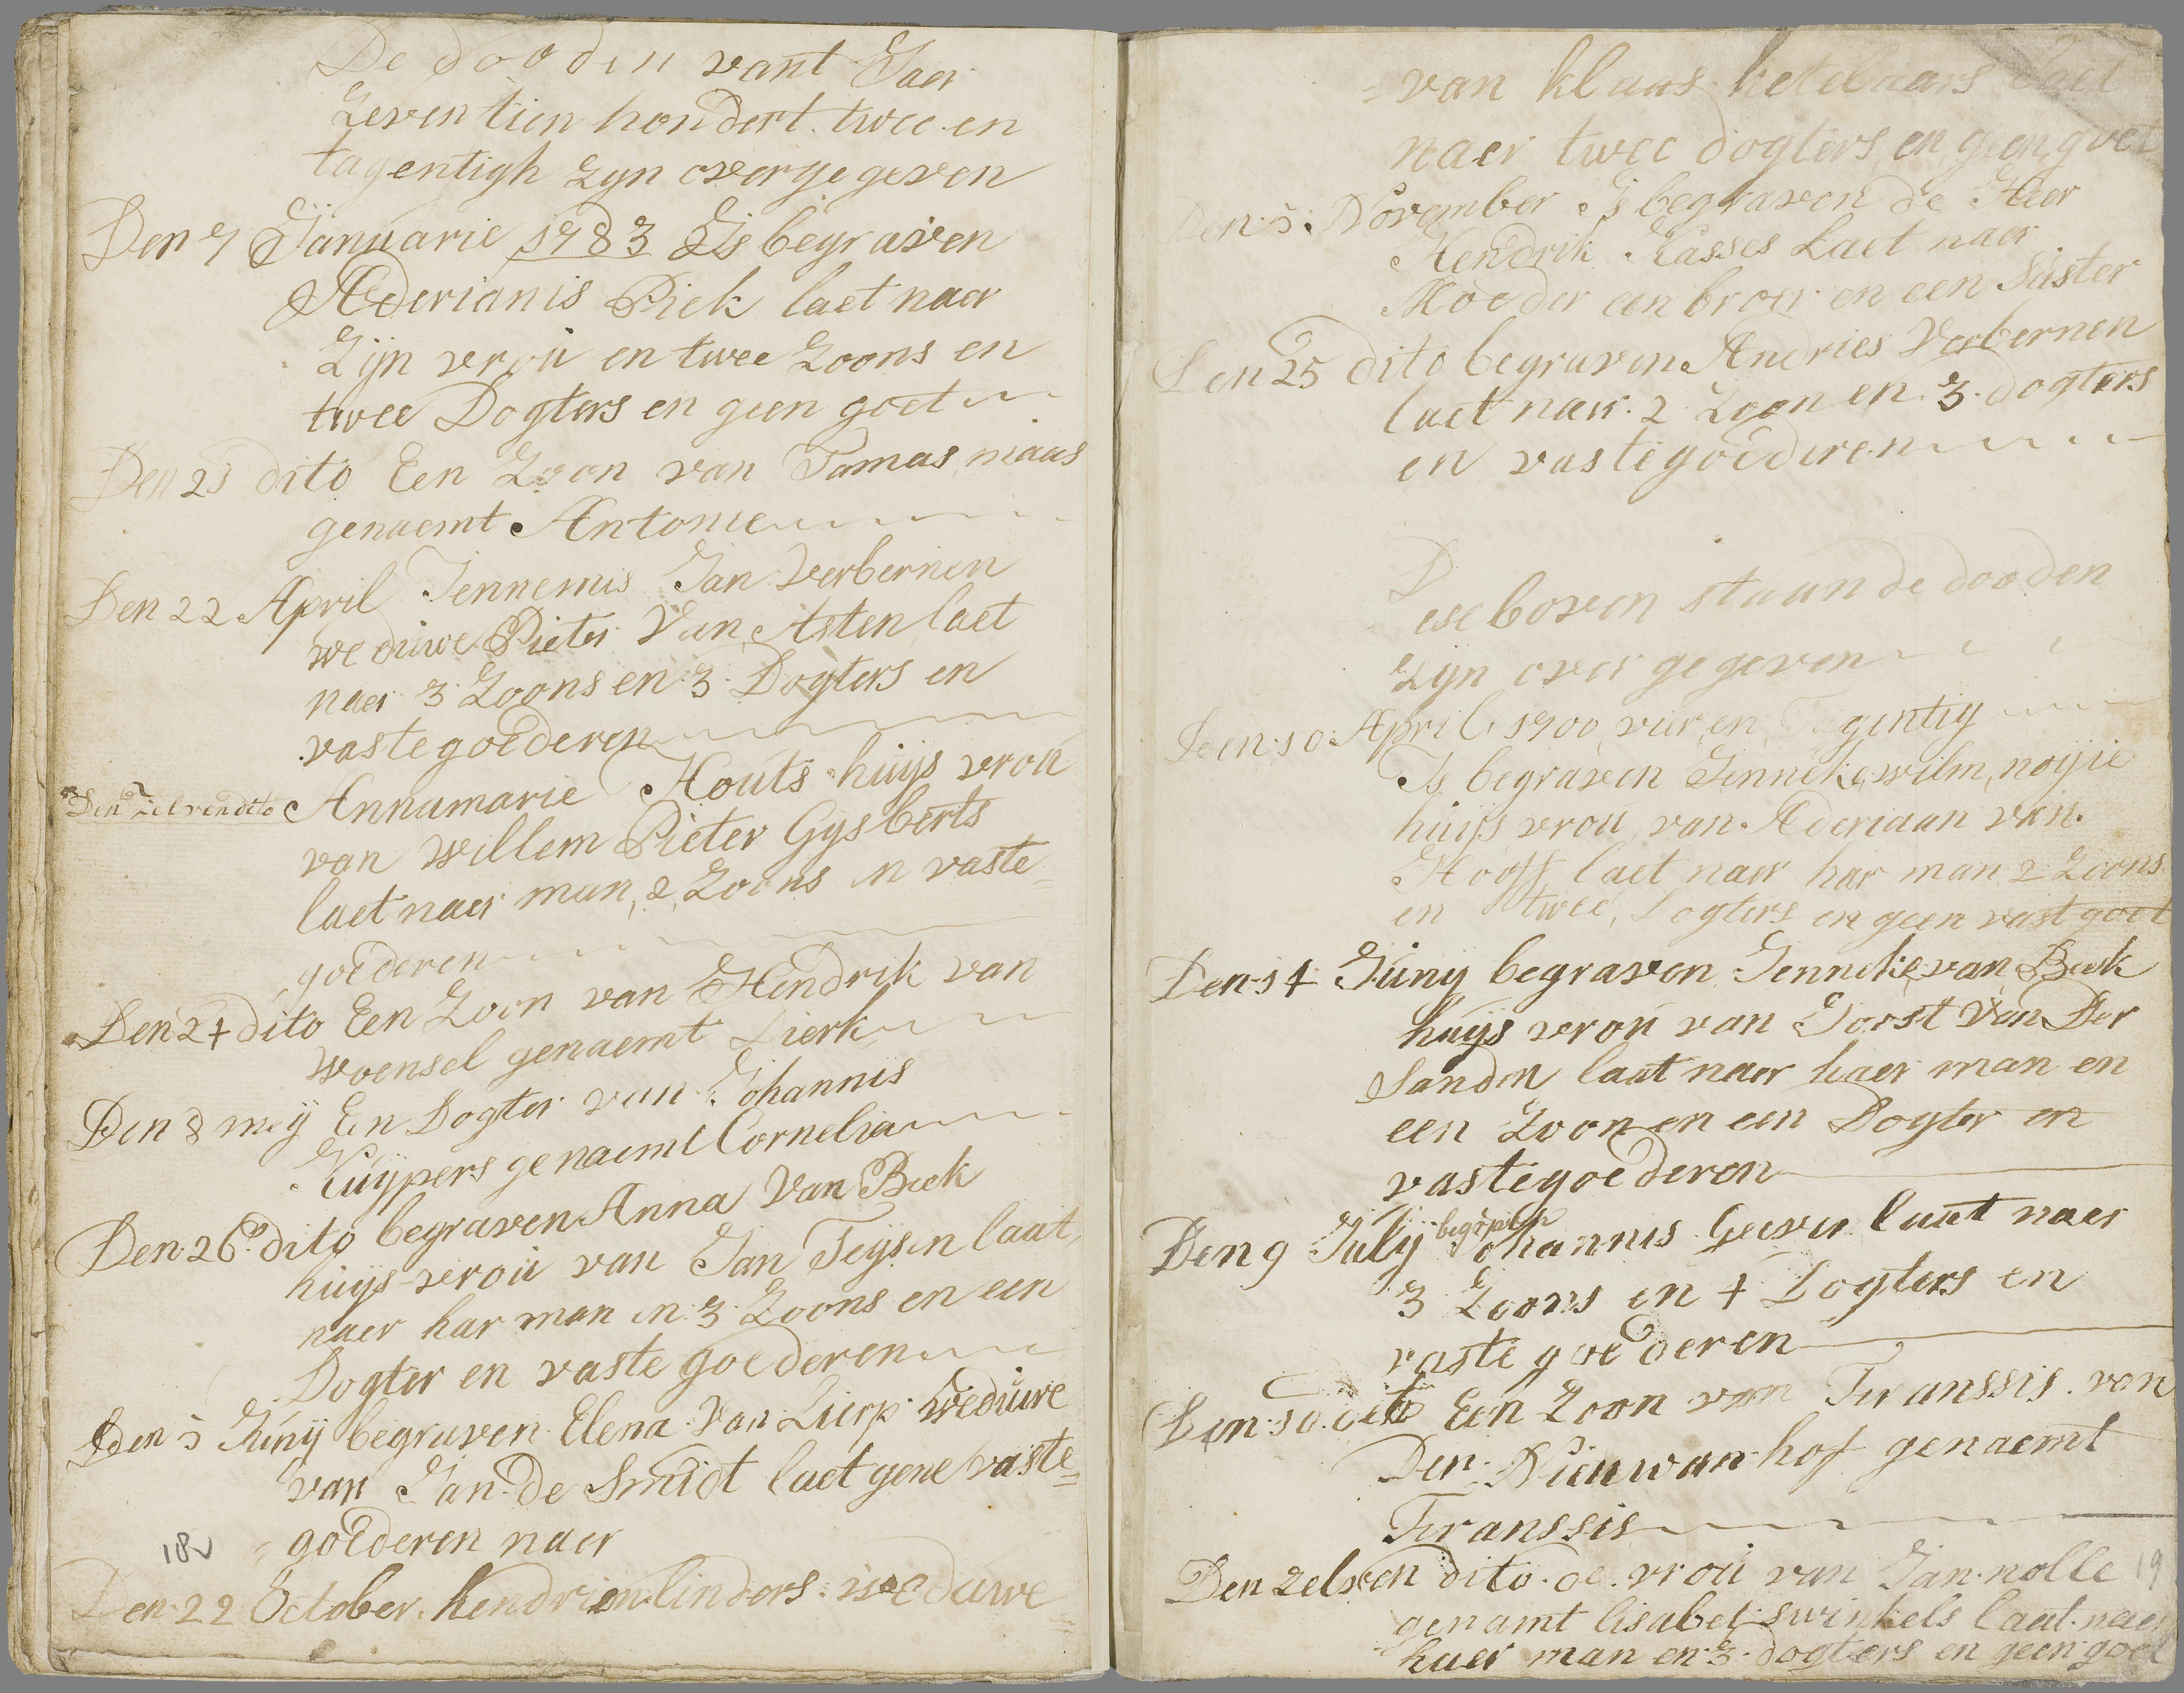 De dooden vant Jaer
Zeventien hondert twee en
tagentigh zyn overgegeven
Den 7 Januarie 1783 Is begraven
Aderianis Piek laet naer
Zijn vroú en twee Zoons en
twee Dogters en geen goet
Den 21 dito Een Zoon van Tamas niaas
genaemt Antonie
Den 22 April Jennemis Jan Verbernen
wedúwe Pieter Van Asten laet
naer 3 Zoons en 3 Dogters en
vastegoederen
Den zelvendito Annamarie Houts huijs vroú
van Willem Pieter Gysberts
laet naer man, 2, Zoons en vaste=
goederen
Den 24 dito Een Zoon van Hendrik van
Woensel genaemt Dierk
Den 8 mey Een Dogter van Johannis
Kuijpers genaemt Cornelia
Den 26 dito begraven Anna Van Beek
huijs vroú van Jan Teijsen laat
naer har man en 3 Zoons en een
Dogter en vaste goederen
den 5 Júnij begraven Elena Van Lierp wedúwe
van Jan de Smidt laet gene vaste=
= goederen naer
18v
Den 22 October hendrien linders weduwe =
= van klaas ketelaars laet
naer twee dogters en geen goet
Den 5 November Is begraven de Heer
Hendrik Kasses Laet naer
Moeder een broer en een Súster
Den 25 dito begraven Andries Verbernen
laet naer 2 Zoon en 3 dogters
en vastegoederen
Dese boven staande dooden
zijn over gegeven
Den 10 April 1700 vier en Tagentig
Is begraven Jenneke wilm noijie
huijs vroú van Aderiaan van
Hooff laet naer har man 2 Zoons
en twee Dogters en geen vast goet
Den 14 Júny begraven Jenneke van Beek
húijs vroú van Joost Van Der
Sanden laat naer haer man en
een Zoon en een Dogter en
vastegoederen
Den 9 Júly begraven Johannis Geever laat naer
3 Zoons en 4 Dogters en
vaste goederen
Den 10 dito Een Zoon van Franssis van
Den Nieuwan hof genaemt
Franssis
Den zelven dito de vroú van Jan nolle
19
genamt lisabet swinkels laat naer
haer man en 3 dogters en geen goet